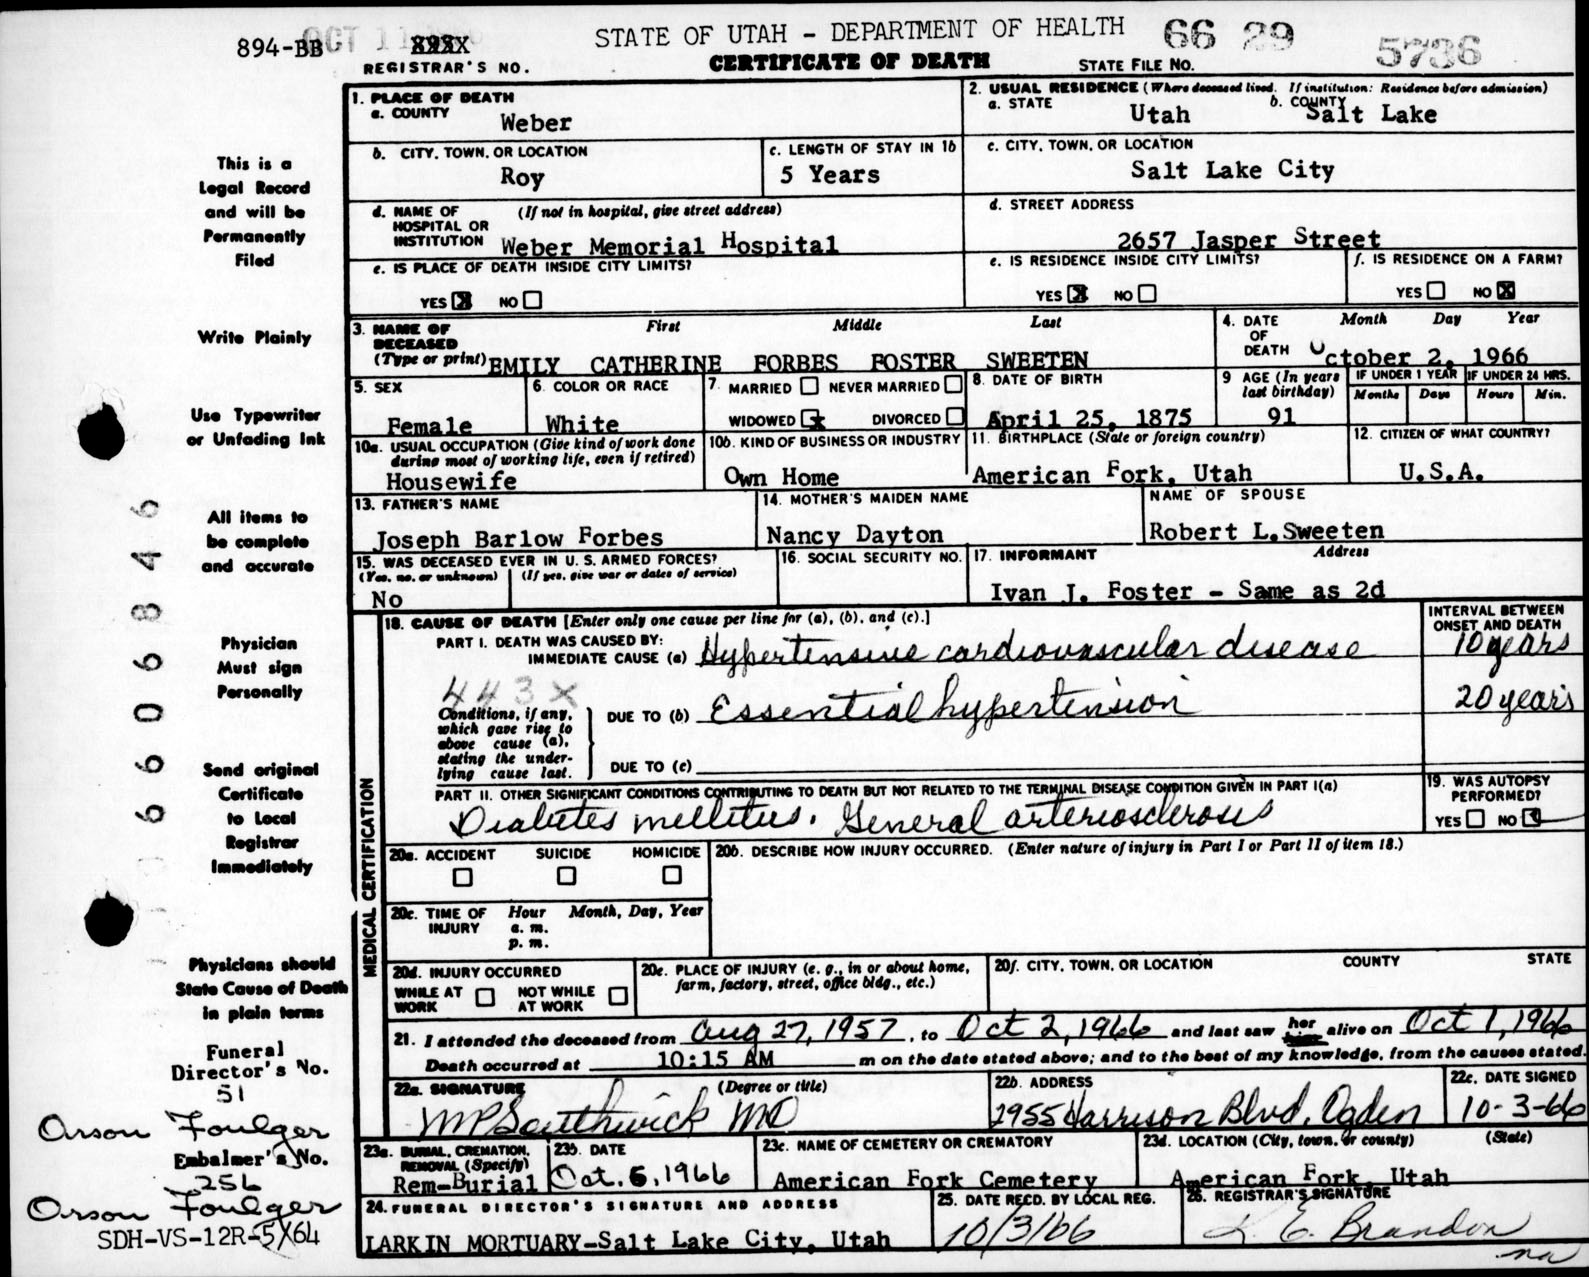 894-BB OCT 11
REGISTRAR'S NO.
STATE OF UTAH - DEPARTMENT OF HEALTH
CERTIFICATE OF DEATH
66 29 5736
STATE FILE NO.
This is a
Legal Record
and will be
Permanently
Filed
Write Plainly
Use Typewriter
or Unfading Ink
All items to
be complete
and accurate
Physician
Must sign
Personally
Send original
Certificate
to Local
Registrar
Immediately
Physicians should
State Cause of Death
in plain terms
Funeral
Director's No.
51
Orson Foulger
Embalmer's No.
256
Orson Foulger
SDH-VS-12R-5/64
66068846
1. PLACE OF DEATH
a. COUNTY
Weber
2. USUAL RESIDENCE (Where deceased lived. If institution: Residence before admission)
a. STATE Utah b. COUNTY Salt Lake
b. CITY, TOWN, OR LOCATION
Roy
c. LENGTH OF STAY IN 1b
5 Years
c. CITY, TOWN, OR LOCATION
Salt Lake City
d. NAME OF HOSPITAL OR INSTITUTION (If not in hospital, give street address)
Weber Memorial Hospital
d. STREET ADDRESS
2657 Jasper Street
e. IS PLACE OF DEATH INSIDE CITY LIMITS?
YES X NO
e. IS RESIDENCE INSIDE CITY LIMITS?
YES X NO
f. IS RESIDENCE ON A FARM?
YES NO X
3. NAME OF DECEASED (Type or print) First Middle Last
EMILY CATHERINE FORBES FOSTER SWEETEN
4. DATE OF DEATH Month Day Year
October 2, 1966
5. SEX
Female
6. COLOR OR RACE
White
7. MARRIED NEVER MARRIED
WIDOWED X DIVORCED
8. DATE OF BIRTH
April 25, 1875
9 AGE (In years last birthday)
91
IF UNDER 1 YEAR
Months Days
IF UNDER 24 HRS.
Hours Min.
10a. USUAL OCCUPATION (Give kind of work done during most of working life, even if retired)
Housewife
10b. KIND OF BUSINESS OR INDUSTRY
Own Home
11. BIRTHPLACE (State or foreign country)
American Fork, Utah
12. CITIZEN OF WHAT COUNTRY?
U.S.A.
13. FATHER'S NAME
Joseph Barlow Forbes
14. MOTHER'S MAIDEN NAME
Nancy Dayton
NAME OF SPOUSE
Robert L. Sweeten
15. WAS DECEASED EVER IN U. S. ARMED FORCES?
(Yes, no, or unknown) (If yes, give war or dates of service)
No
16. SOCIAL SECURITY NO.
17. INFORMANT Address
Ivan J. Foster - Same as 2d
MEDICAL CERTIFICATION
18. CAUSE OF DEATH [Enter only one cause per line for (a), (b), and (c).]
INTERVAL BETWEEN ONSET AND DEATH
PART I. DEATH WAS CAUSED BY:
IMMEDIATE CAUSE (a) Hypertensive cardiovascular disease 10 years
443X
Conditions, if any, which gave rise to above cause (a), stating the underlying cause last.
DUE TO (b) Essential hypertension 20 years
DUE TO (c)
PART II. OTHER SIGNIFICANT CONDITIONS CONTRIBUTING TO DEATH BUT NOT RELATED TO THE TERMINAL DISEASE CONDITION GIVEN IN PART I(a)
Diabetes mellitus. General arteriosclerosis
19. WAS AUTOPSY PERFORMED?
YES NO
20a. ACCIDENT SUICIDE HOMICIDE
20b. DESCRIBE HOW INJURY OCCURRED. (Enter nature of injury in Part I or Part II of item 18.)
20c. TIME OF INJURY Hour Month, Day, Year
a. m.
p. m.
20d. INJURY OCCURRED
WHILE AT WORK NOT WHILE AT WORK
20e. PLACE OF INJURY (e. g., in or about home, farm, factory, street, office bldg., etc.)
20f. CITY, TOWN, OR LOCATION COUNTY STATE
21. I attended the deceased from Aug 27, 1957, to Oct 2, 1966 and last saw her him alive on Oct 1, 1966
Death occurred at 10:15 AM m on the date stated above; and to the best of my knowledge, from the causes stated.
22a. SIGNATURE (Degree or title)
MP Southwick MD
22b. ADDRESS
2955 Harrison Blvd. Ogden
22c. DATE SIGNED
10-3-66
23a. BURIAL, CREMATION, REMOVAL (Specify)
Rem-Burial
23b. DATE
Oct. 5, 1966
23c. NAME OF CEMETERY OR CREMATORY
American Fork Cemetery
23d. LOCATION (City, town, or county) (State)
American Fork, Utah
24. FUNERAL DIRECTOR'S SIGNATURE AND ADDRESS
LARKIN MORTUARY-Salt Lake City, Utah
25. DATE RECD. BY LOCAL REG.
10/3/66
26. REGISTRAR'S SIGNATURE
E. Brandon
na